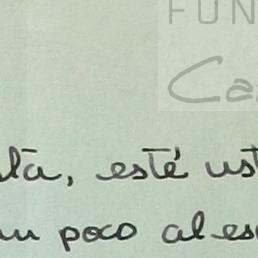 FUN
Ca
esté ust
un poco al es